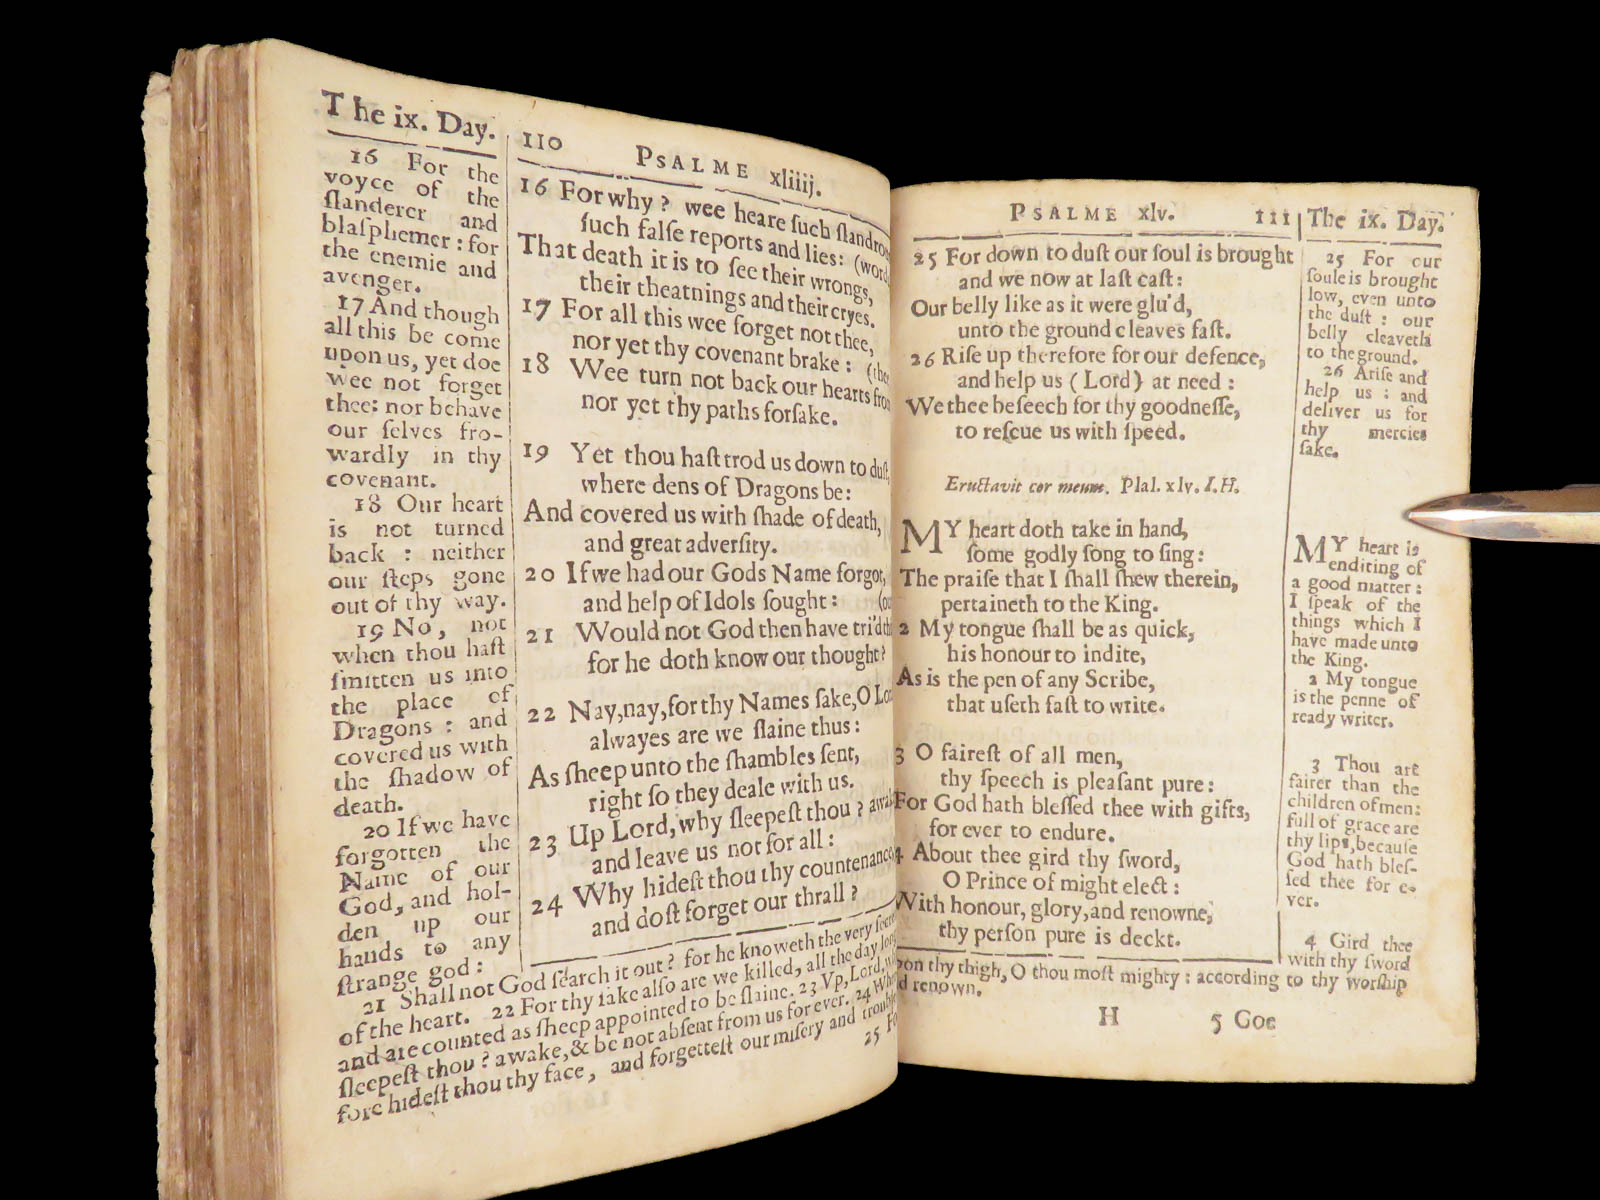 The ix. Day.
16 For the
voyce of the
ſlanderer and
blaſphemer : for
the enemie and
avenger.
17 And though
all this be come
upon us, yet doe
wee not forget
thee: nor behave
our ſelves fro-
wardly in thy
covenant.
18 Our heart
is not turned
back : neither
our ſteps gone
out of thy way.
19 No, not
when thou haſt
ſmitten us into
the place of
Dragons : and
covered us with
the ſhadow of
death.
20 If we have
forgotten the
Name of our
God, and hol-
den up our
hands to any
ſtrange god :
110 PSALME xliiij.
16 For why ? wee heare ſuch ſlandrous
ſuch falſe reports and lies: (word
That death it is to ſee their wrongs,
their theatnings and their cryes.
17 For all this wee forget not thee,
nor yet thy covenant brake : (thee
18 Wee turn not back our hearts from
nor yet thy paths forſake.
19 Yet thou haſt trod us down to duſt,
where dens of Dragons be:
And covered us with ſhade of death,
and great adverſity.
20 If we had our Gods Name forgot,
and help of Idols ſought : (ou
21 Would not God then have tri'd th
for he doth know our thought ?
22 Nay,nay,for thy Names ſake,O Lo
alwayes are we ſlaine thus :
As ſheep unto the ſhambles ſent,
right ſo they deale with us.
23 Up Lord,why ſleepeſt thou ? awak
and leave us not for all :
24 Why hideſt thou thy countenance,
and doſt forget our thrall ?
21 Shall not God ſearch it out ? for he knoweth the very ſecre
of the heart. 22 For thy ſake alſo are we killed, all the day long
and are counted as ſheep appointed to be ſlaine. 23 Vp, Lord, w
ſleepeſt thou ? awake,& be not abſent from us for ever. 24 Whe
fore hideſt thou thy face, and forgetteſt our miſery and trouble
25 Fo
PSALME xlv. 111
25 For down to duſt our ſoul is brought
and we now at laſt caſt :
Our belly like as it were glu'd,
unto the ground cleaves faſt.
26 Riſe up therefore for our defence,
and help us (Lord) at need :
We thee beſeech for thy goodneſſe,
to reſcue us with ſpeed.
Eructavit cor meum. Pſal. xlv. I.H.
MY heart doth take in hand,
ſome godly ſong to ſing :
The praiſe that I ſhall ſhew therein,
pertaineth to the King.
2 My tongue ſhall be as quick,
his honour to indite,
As is the pen of any Scribe,
that uſeth faſt to write.
3 O faireſt of all men,
thy ſpeech is pleaſant pure :
For God hath bleſſed thee with gifts,
for ever to endure.
4 About thee gird thy ſword,
O Prince of might elect :
With honour, glory,and renowne,
thy perſon pure is deckt.
The ix. Day.
25 For our
ſoule is brought
low, even unto
the duſt : our
belly cleaveth
to the ground.
26 Ariſe and
help us : and
deliver us for
thy mercies
ſake.
MY heart is
enditing of
a good matter :
I ſpeak of the
things which I
have made unto
the King.
2 My tongue
is the penne of
ready writer.
3 Thou art
fairer than the
children of men:
full of grace are
thy lips,becauſe
God hath bleſ-
ſed thee for e-
ver.
4 Gird thee
with thy ſword
pon thy thigh, O thou moſt mighty : according to thy worſhip
d renown.
H 5 Goe